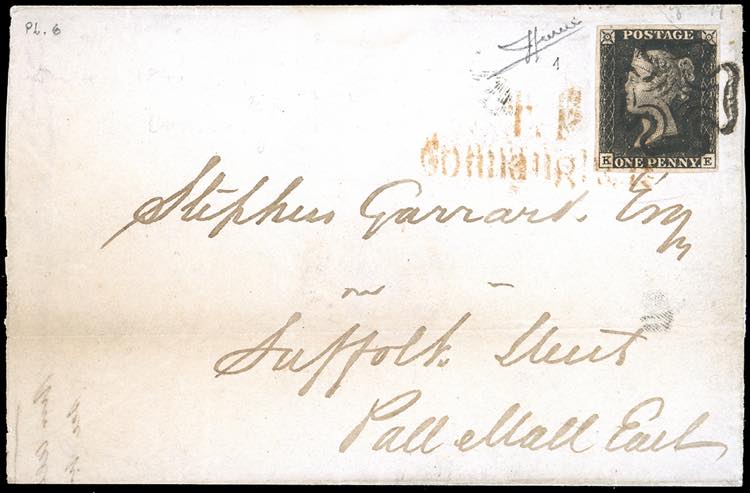 PL. 6
POSTAGE
K ONE PENNY. E
T. P
Stephen Garrard. Esqr
Suffolk Street
Pall Mall East